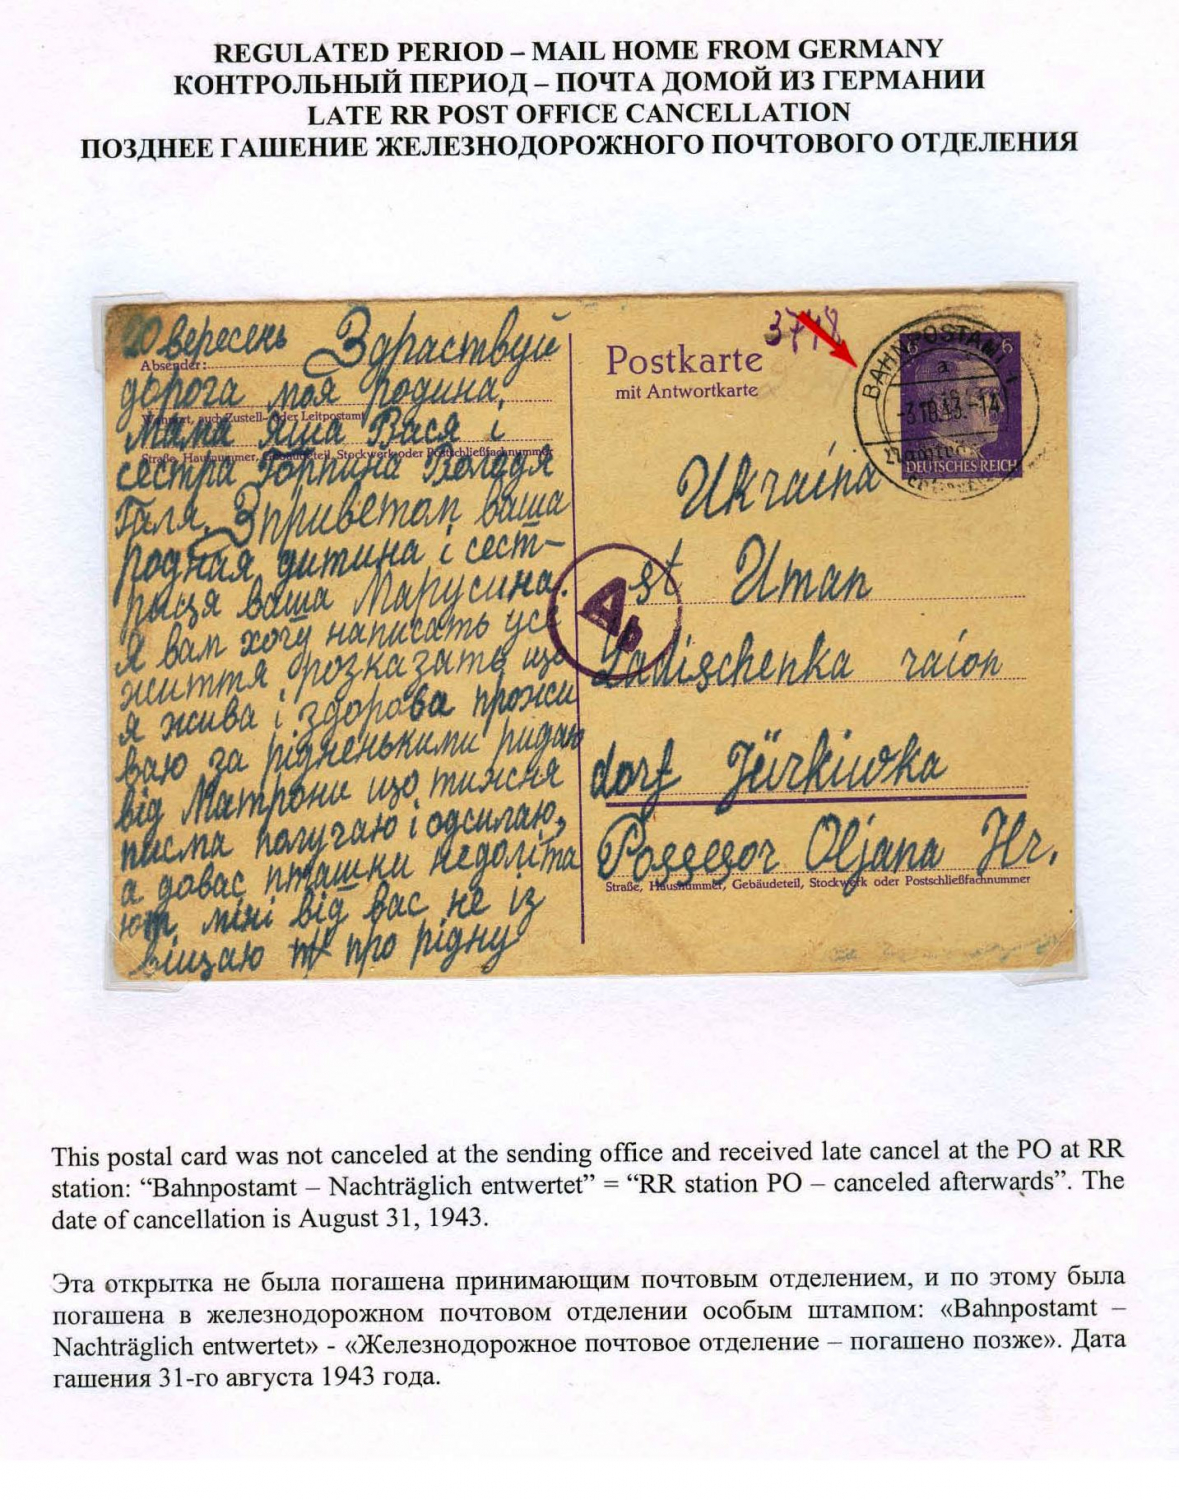 REGULATED PERIOD – MAIL HOME FROM GERMANY
КОНТРОЛЬНЫЙ ПЕРИОД – ПОЧТА ДОМОЙ ИЗ ГЕРМАНИИ
LATE RR POST OFFICE CANCELLATION
ПОЗДНЕЕ ГАШЕНИЕ ЖЕЛЕЗНОДОРОЖНОГО ПОЧТОВОГО ОТДЕЛЕНИЯ
20 вересень Здраствуй
Absender:
дорога моя родина,
Wohnort, auch Zustell- oder Leitpostamt
мама Яша Вася і
Straße, Hausnummer, Gebäudeteil, Stockwerk oder Postschließfachnummer
сестра Горпина Володя
Галя. Зприветом ваша
родная дитина і сест-
риця ваша Марусина.
Я вам хочу написать усе
життя розказать що
я жива і здорова прожи
ваю за рідненькими ридаю
від Матрони що тижня
писма получаю і одсилаю,
а довас пташки недоліта
ют, міні від вас не із
віщаю про рідну
3748
Postkarte
mit Antwortkarte
BAHNPOSTAMT 1
a
-3.10.43.-14
6 6
DEUTSCHES REICH
Ukraina
Ab
st Uman
Ladischenka raion
dorf Jürkiwka
Possessor Oljana Hr.
Straße, Hausnummer, Gebäudeteil, Stockwerk oder Postschließfachnummer
This postal card was not canceled at the sending office and received late cancel at the PO at RR
station: “Bahnpostamt – Nachträglich entwertet” = “RR station PO – canceled afterwards”. The
date of cancellation is August 31, 1943.
Эта открытка не была погашена принимающим почтовым отделением, и по этому была
погашена в железнодорожном почтовом отделении особым штампом: «Bahnpostamt –
Nachträglich entwertet» - «Железнодорожное почтовое отделение – погашено позже». Дата
гашения 31-го августа 1943 года.